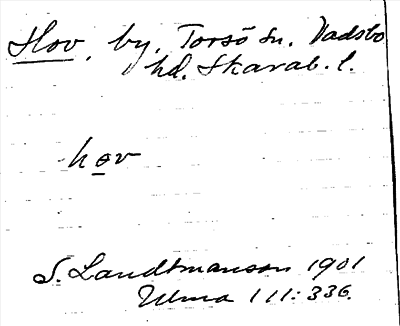 Hov, by, Torsö sn. Vadsbo
hd. Skarab. l.
hov
S. Landtmanson 1901
Ulma 111:336.